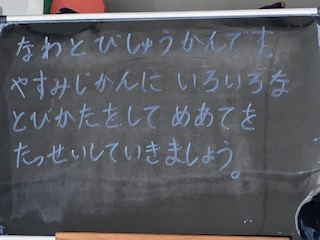 なわとびしゅうかんです。
やすみじかんに いろいろな
とびかたをして めあてを
たっせいしていきましょう。